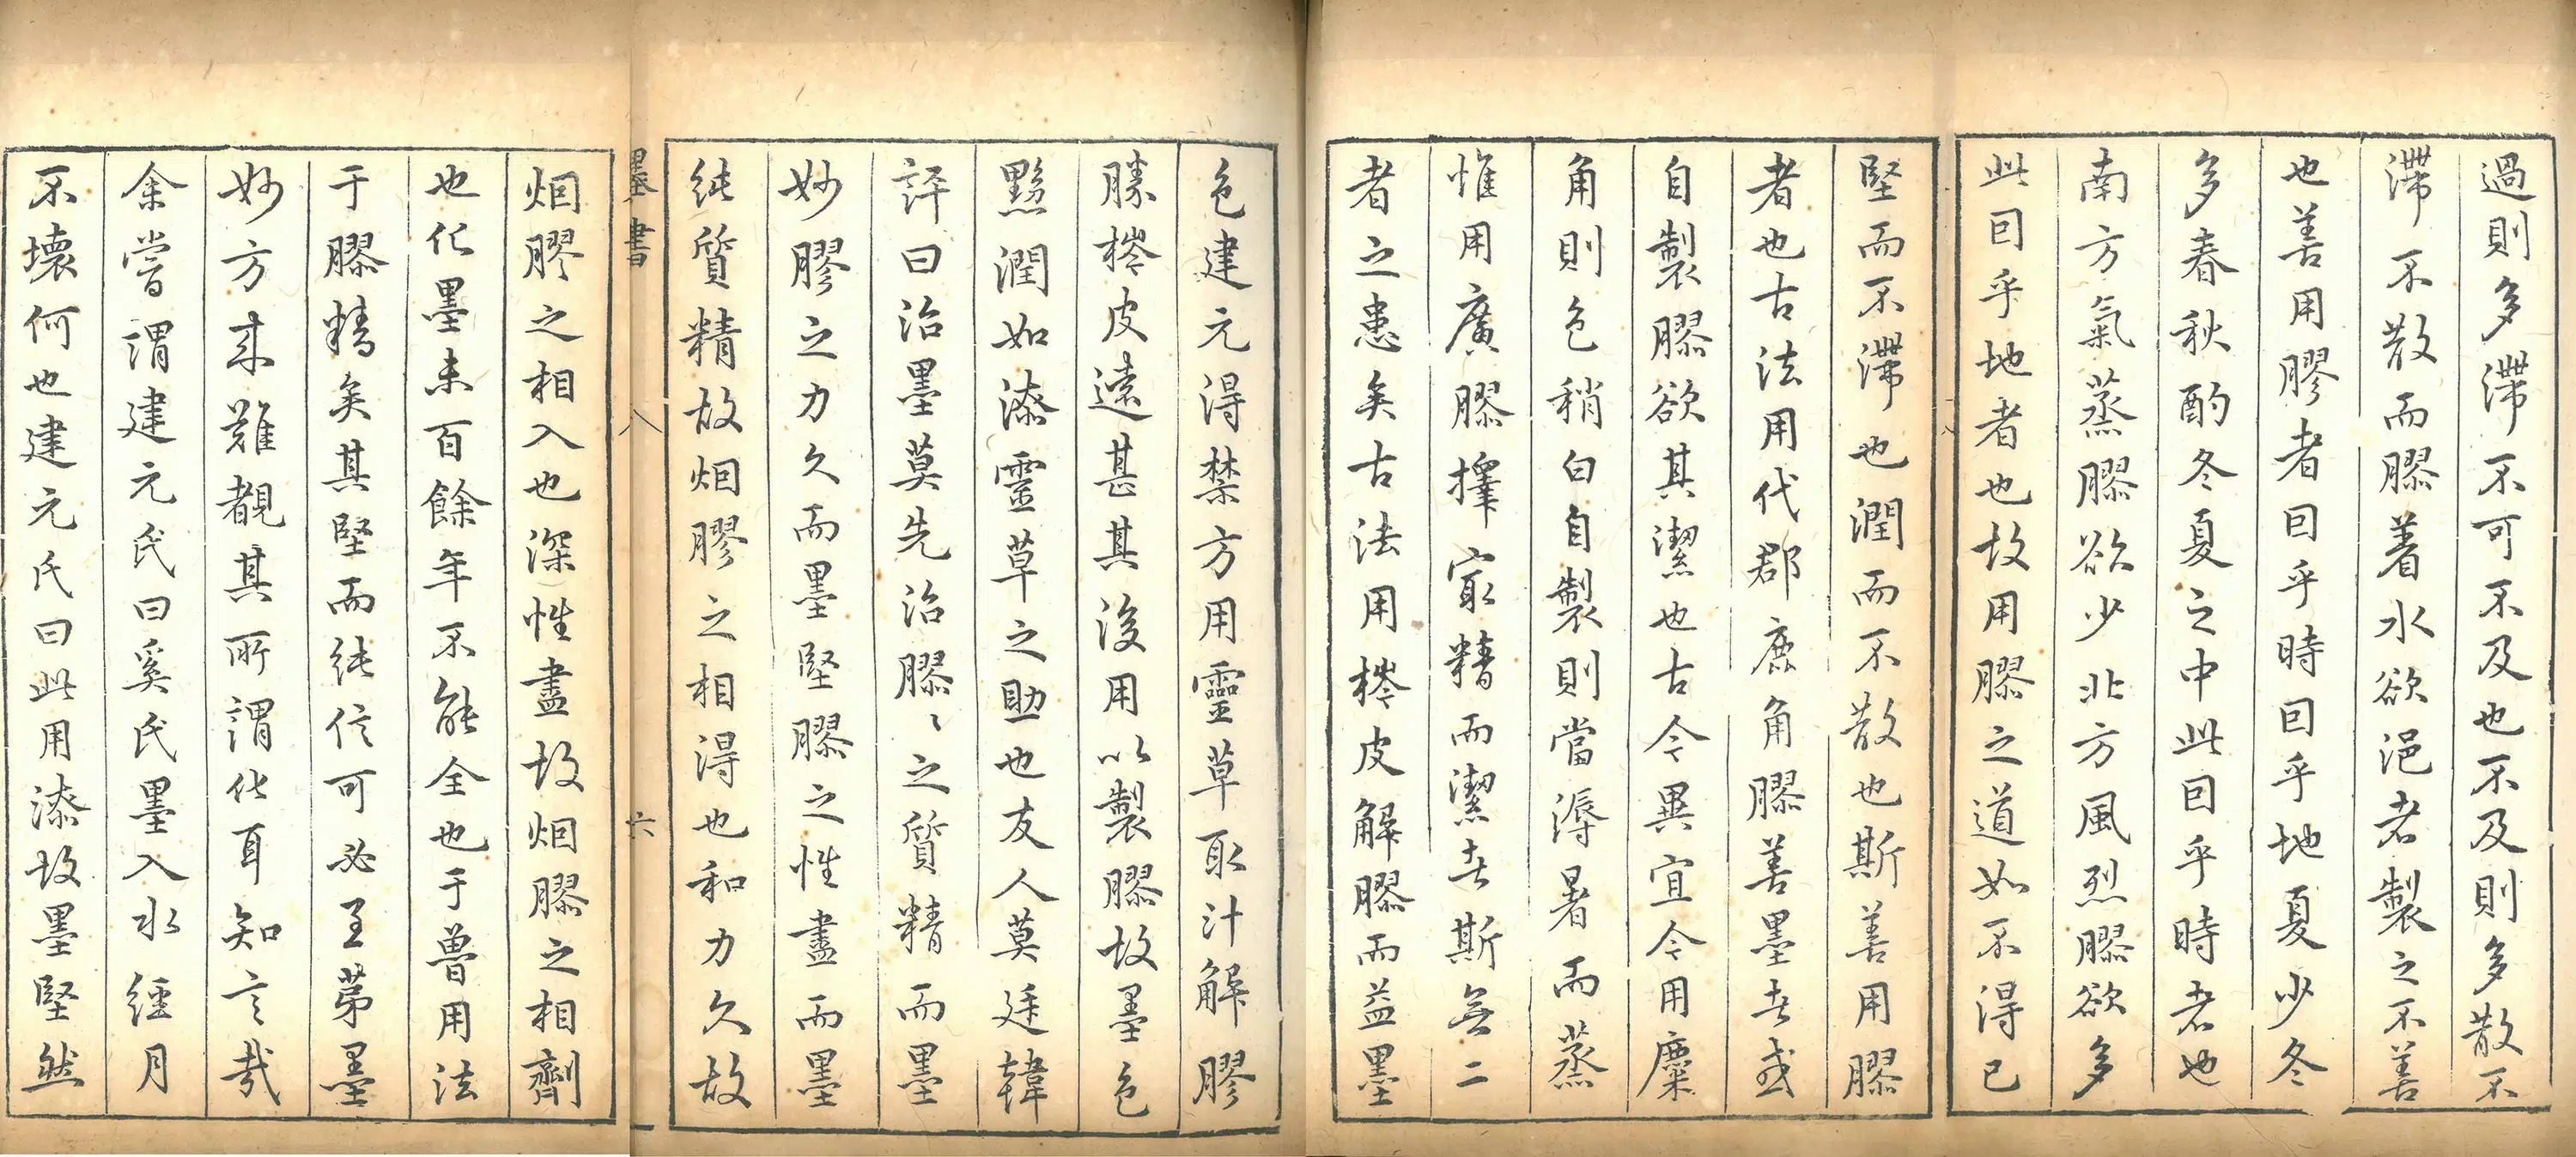 過則多滯不可不及也不及則多散不
滯不散而膠着水欲浥者製之不善
也善用膠者因乎時因乎地夏少冬
多春秋酌冬夏之中此因乎時者也
南方氣蒸膠欲少北方風烈膠欲多
此因乎地者也故用膠之道如不得已
堅而不滯也潤而不散也斯善用膠
者也古法用代郡鹿角膠善墨者或
自製膠欲其潔也古今異宜今用麋
角則色稍白自製則當溽暑而蒸
惟用廣膠擇㝡精而潔者斯無二
者之患矣古法用梣皮解膠而益墨
色建元得禁方用靈草取汁解膠
勝梣皮遠甚其後用以製膠故墨色
黟潤如漆靈草之助也友人莫廷韓
評曰治墨莫先治膠〻之質精而墨
妙膠之力久而墨堅膠之性盡而墨
純質精故烟膠之相得也和力久故
墨書 八 六
烟膠之相入也深性盡故烟膠之相劑
也化墨未百餘年不能全也于魯用法
于膠精矣其堅而純信可必至第墨
妙方來難覩其所謂化耳知言哉
余嘗謂建元氏曰奚氏墨入水經月
不壞何也建元氏曰此用漆故墨堅然